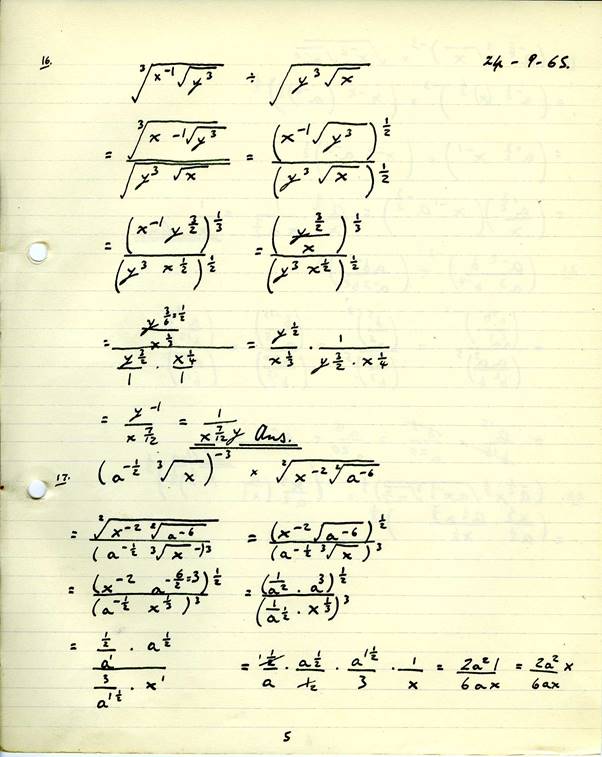 16. ∛(x⁻¹√(y³)) ÷ √(y³ √x) 24-9-65.
= ∛(x⁻¹√(y³)) / √(y³ √x) = (x⁻¹√(y³))^(1/2) / (y³ √x)^(1/2)
= (x⁻¹ y^(3/2))^(1/3) / (y³ x^(1/2))^(1/2) = (y^(3/2) / x)^(1/3) / (y³ x^(1/2))^(1/2)
= (y^(3/6=1/2) / x^(1/3)) / (y^(3/2)/1 · x^(1/4)/1) = y^(1/2) / x^(1/3) · 1 / (y^(3/2) · x^(1/4))
= y⁻¹ / x^(7/12) = 1 / (x^(7/12) y) Ans.
17. (a^(-1/2) ∛x)⁻³ × ²√(x⁻² ²√(a⁻⁶))
= ²√(x⁻² ²√(a⁻⁶)) / (a^(-1/2) ∛(x⁻¹))³ = (x⁻² √(a⁻⁶))^(1/2) / (a^(-1/2) ∛x)³
= (x⁻² a^(-6/2=3))^(1/2) / (a^(-1/2) x^(1/3))³ = (1/a² · a³)^(1/2) / (1/a^(1/2) · x^(1/3))³
= ((1/2)/a¹ · a^(1/2)) / (3/a^(1 1/2) · x¹) = (1/2)/a · a^(1/2)/(1/2) · a^(1 1/2)/3 · 1/x = 2a²1 / 6ax = 2a²x / 6ax
5